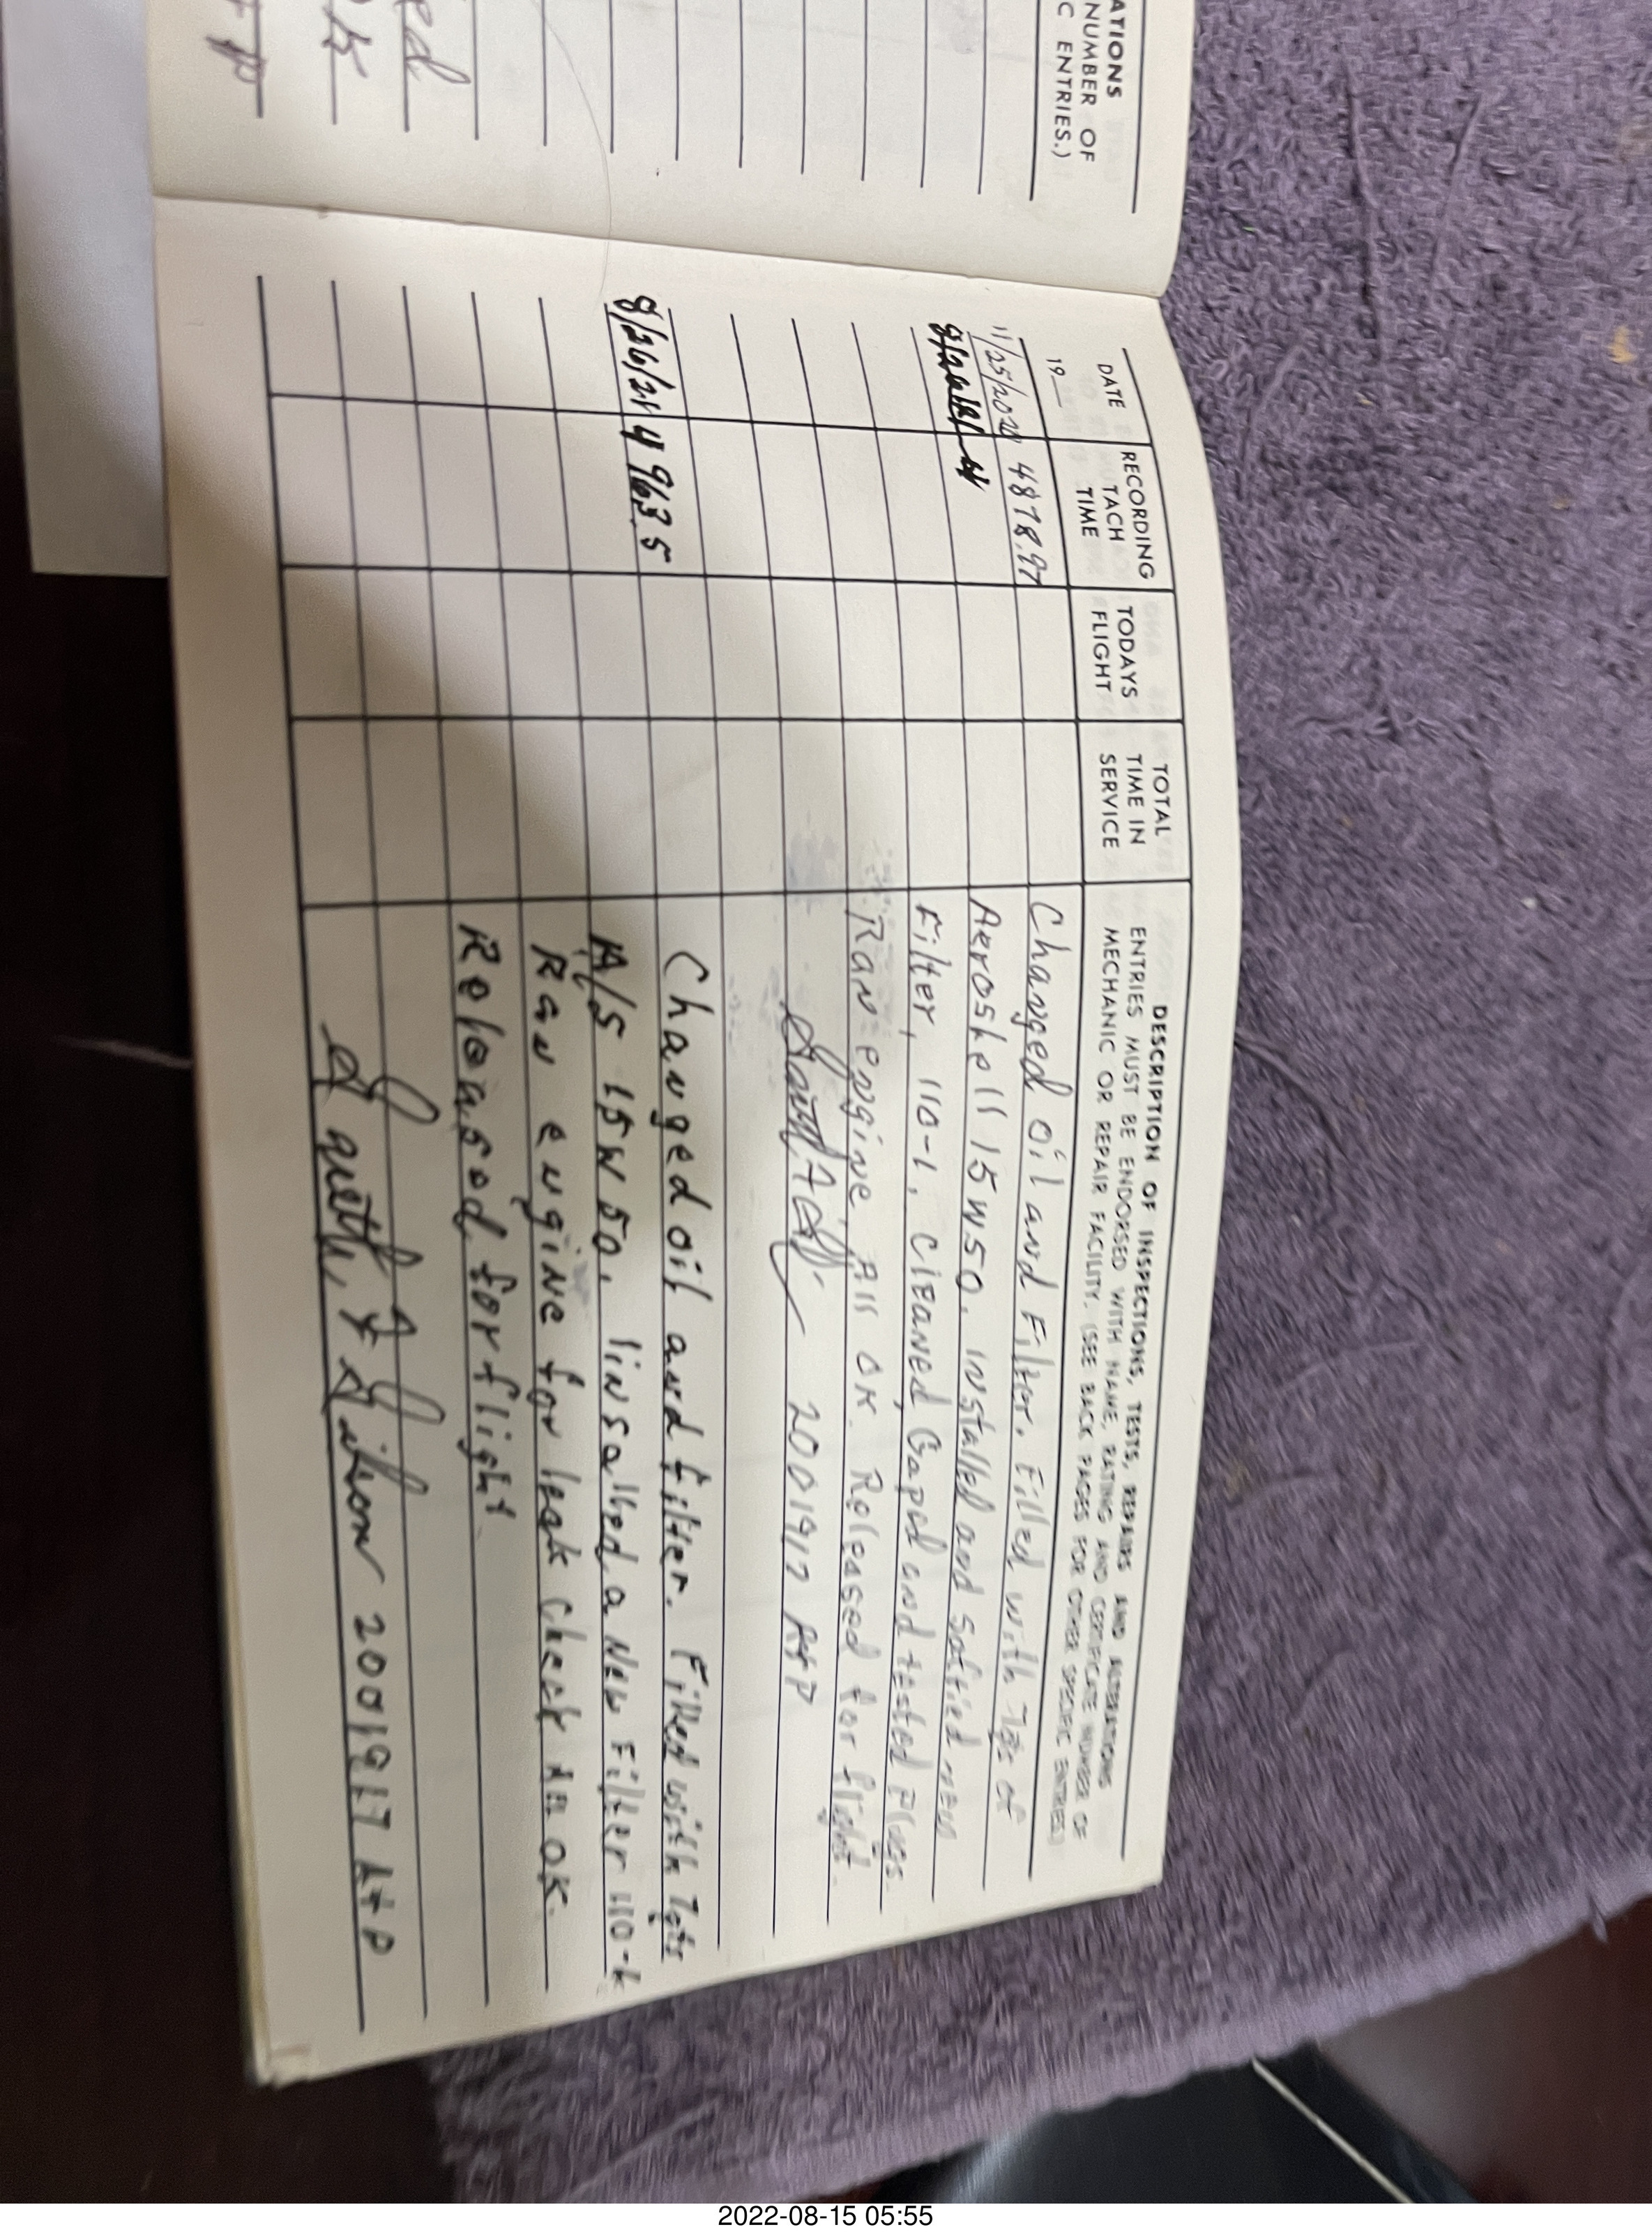 ATIONS
NUMBER OF
C ENTRIES.)
ed
DATE
19__
RECORDING
TACH
TIME
TODAYS
FLIGHT
TOTAL
TIME IN
SERVICE
DESCRIPTION OF INSPECTIONS, TESTS, REPAIRS AND ALTERATIONS
ENTRIES MUST BE ENDORSED WITH NAME, RATING AND CERTIFICATE NUMBER OF
MECHANIC OR REPAIR FACILITY. (SEE BACK PAGES FOR OTHER SPECIFIC ENTRIES.)
11/25/2020 4878.97 Changed oil and Filter. Filled with 7qts of
Aeroshell 15W50. Installed and saftied new
Filter, 110-1, Cleaned, Gaped and tested Plugs.
Ran engine, All OK. Released for flight.
2001917 A&P
8/26/21 4963.5 Changed oil and filter. Filled with 7qts
A/S 15W50. Iinsalled a New Filter 110-1
Ran engine for leak check All OK.
Released for flight
2001917 A&P
2022-08-15 05:55